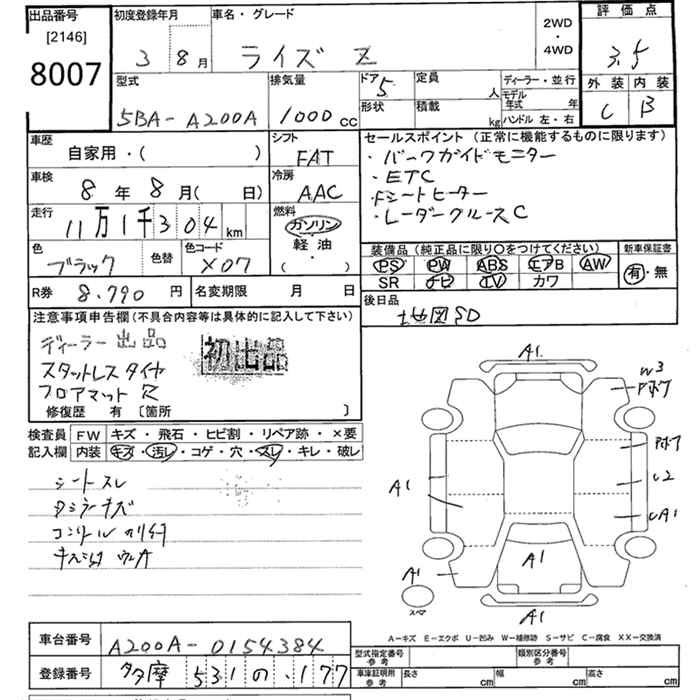 出品番号
[2146]
8007
初度登録年月
3 8月
車名・グレード
ライズ Z
2WD
・
4WD
評価点
3.5
外装 内装
C B
型式
5BA- A200A
排気量
1000 cc
ドア 5
形状
定員 人
積載 kg
ディーラー・並行
モデル年式 年
ハンドル 左・右
車歴
自家用・( )
シフト
FAT
車検
8年 8月( 日)
冷房
AAC
走行
11万1千304 km
燃料
ガソリン
軽油
( ・ )
色
ブラック
色替
色コード
X07
R券 8,790円
名変期限 月 日
セールスポイント(正常に機能するものに限ります)
・パークガイドモニター
・ETC
・Fシートヒーター
・レーダークルーズC
装備品(純正品に限り○をつけてください)
PS PW ABS エアB AW
SR ナビ TV カワ
新車保証書
有・無
後日品
地図SD
注意事項申告欄(不具合内容等は具体的に記入して下さい)
ディーラー出品
初出品
スタットレスタイヤ
フロアマット 穴
修復歴 有 〔箇所 〕
検査員記入欄
FW キズ・飛石・ヒビ割・リペア跡・×要
内装 キズ・汚レ・コゲ・穴・スレ・キレ・破レ
シートスレ
コンソール
A1
W3
A1
U2
A1
A1
A1
A1
スペア
A-キズ E-エクボ U-凹み W-補修跡 S-サビ C-腐食 XX-交換済
車台番号 A200A-0154384
登録番号 多摩 531 の ・177
型式指定番号 参考
類別区分番号 参考
車庫証明用 参考
長さ cm
幅 cm
高さ cm